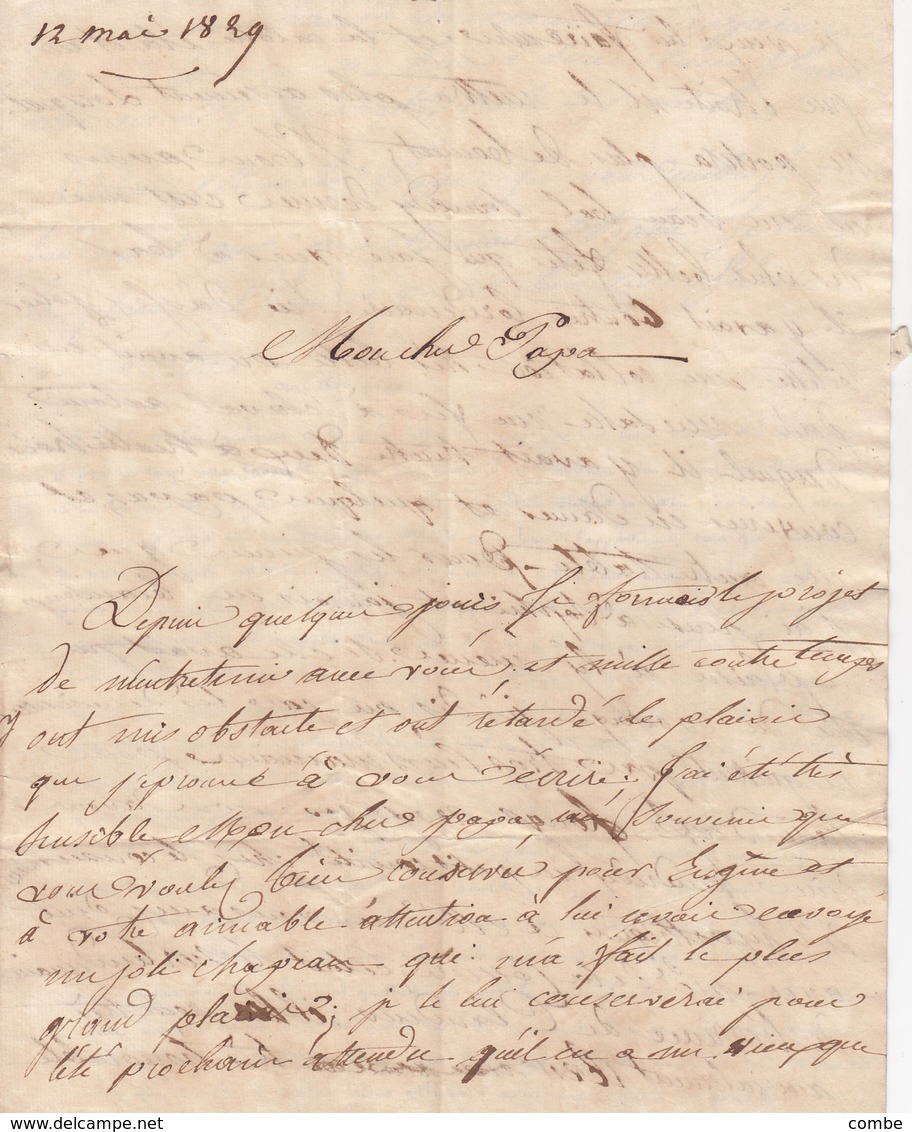 12 mai 1829
Mon cher Papa
Depuis quelques jours je formais le projet
de m'entretenir avec vous, et mille contre temps
y
ont mis obstacle et ont retardé le plaisir
que j'éprouve à vous écrire; J'ai été très
sensible Mon cher papa au souvenir que
vous voulez bien conserver pour Eugène et
à votre aimable attention à lui avoir envoyé
un joli chapeau qui m'a fait le plus
grand plaisir; je le lui conserverai pour
l'été prochain attendu qu'il en a un vieux que
www.delcampe.net
combe